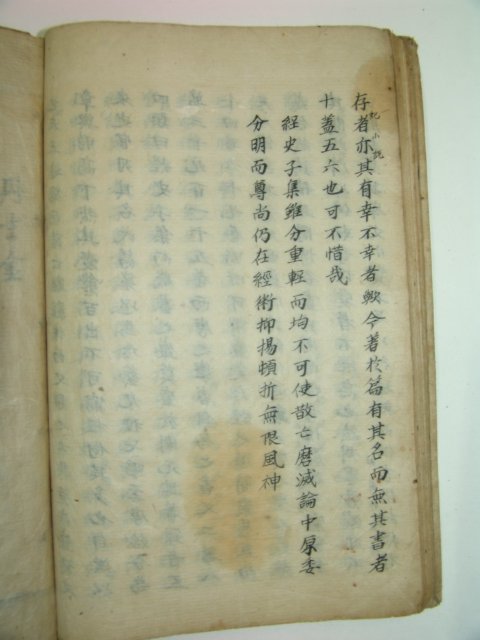 存者亦其有幸不幸者歟今著於篇有其名而無其書者
十盖五六也可不惜哉
經史子集雖分重輕而均不可使散亡磨滅論中原委
分明而尊尚仍在經術抑揚頓折無限風神